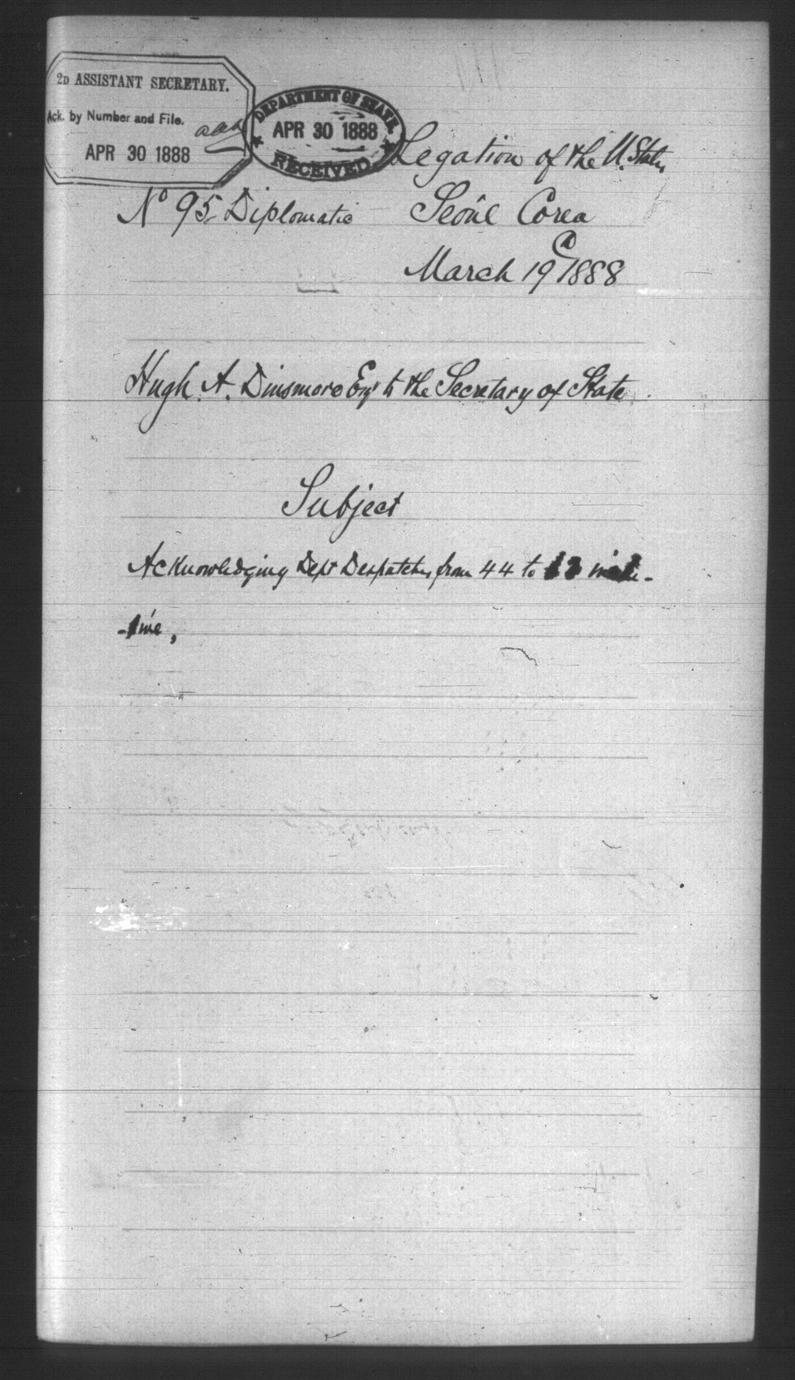 2D ASSISTANT SECRETARY.
Ack. by Number and File.
APR 30 1888
DEPARTMENT OF STATE,
APR 30 1888
RECEIVED.
Legation of the U. States
No 95. Diplomatic Seöul Corea
March 19 1888
Hugh. A. Dinsmore Esqr to the Secretary of State
Subject
Acknowledging Dept Despatches from 44 to